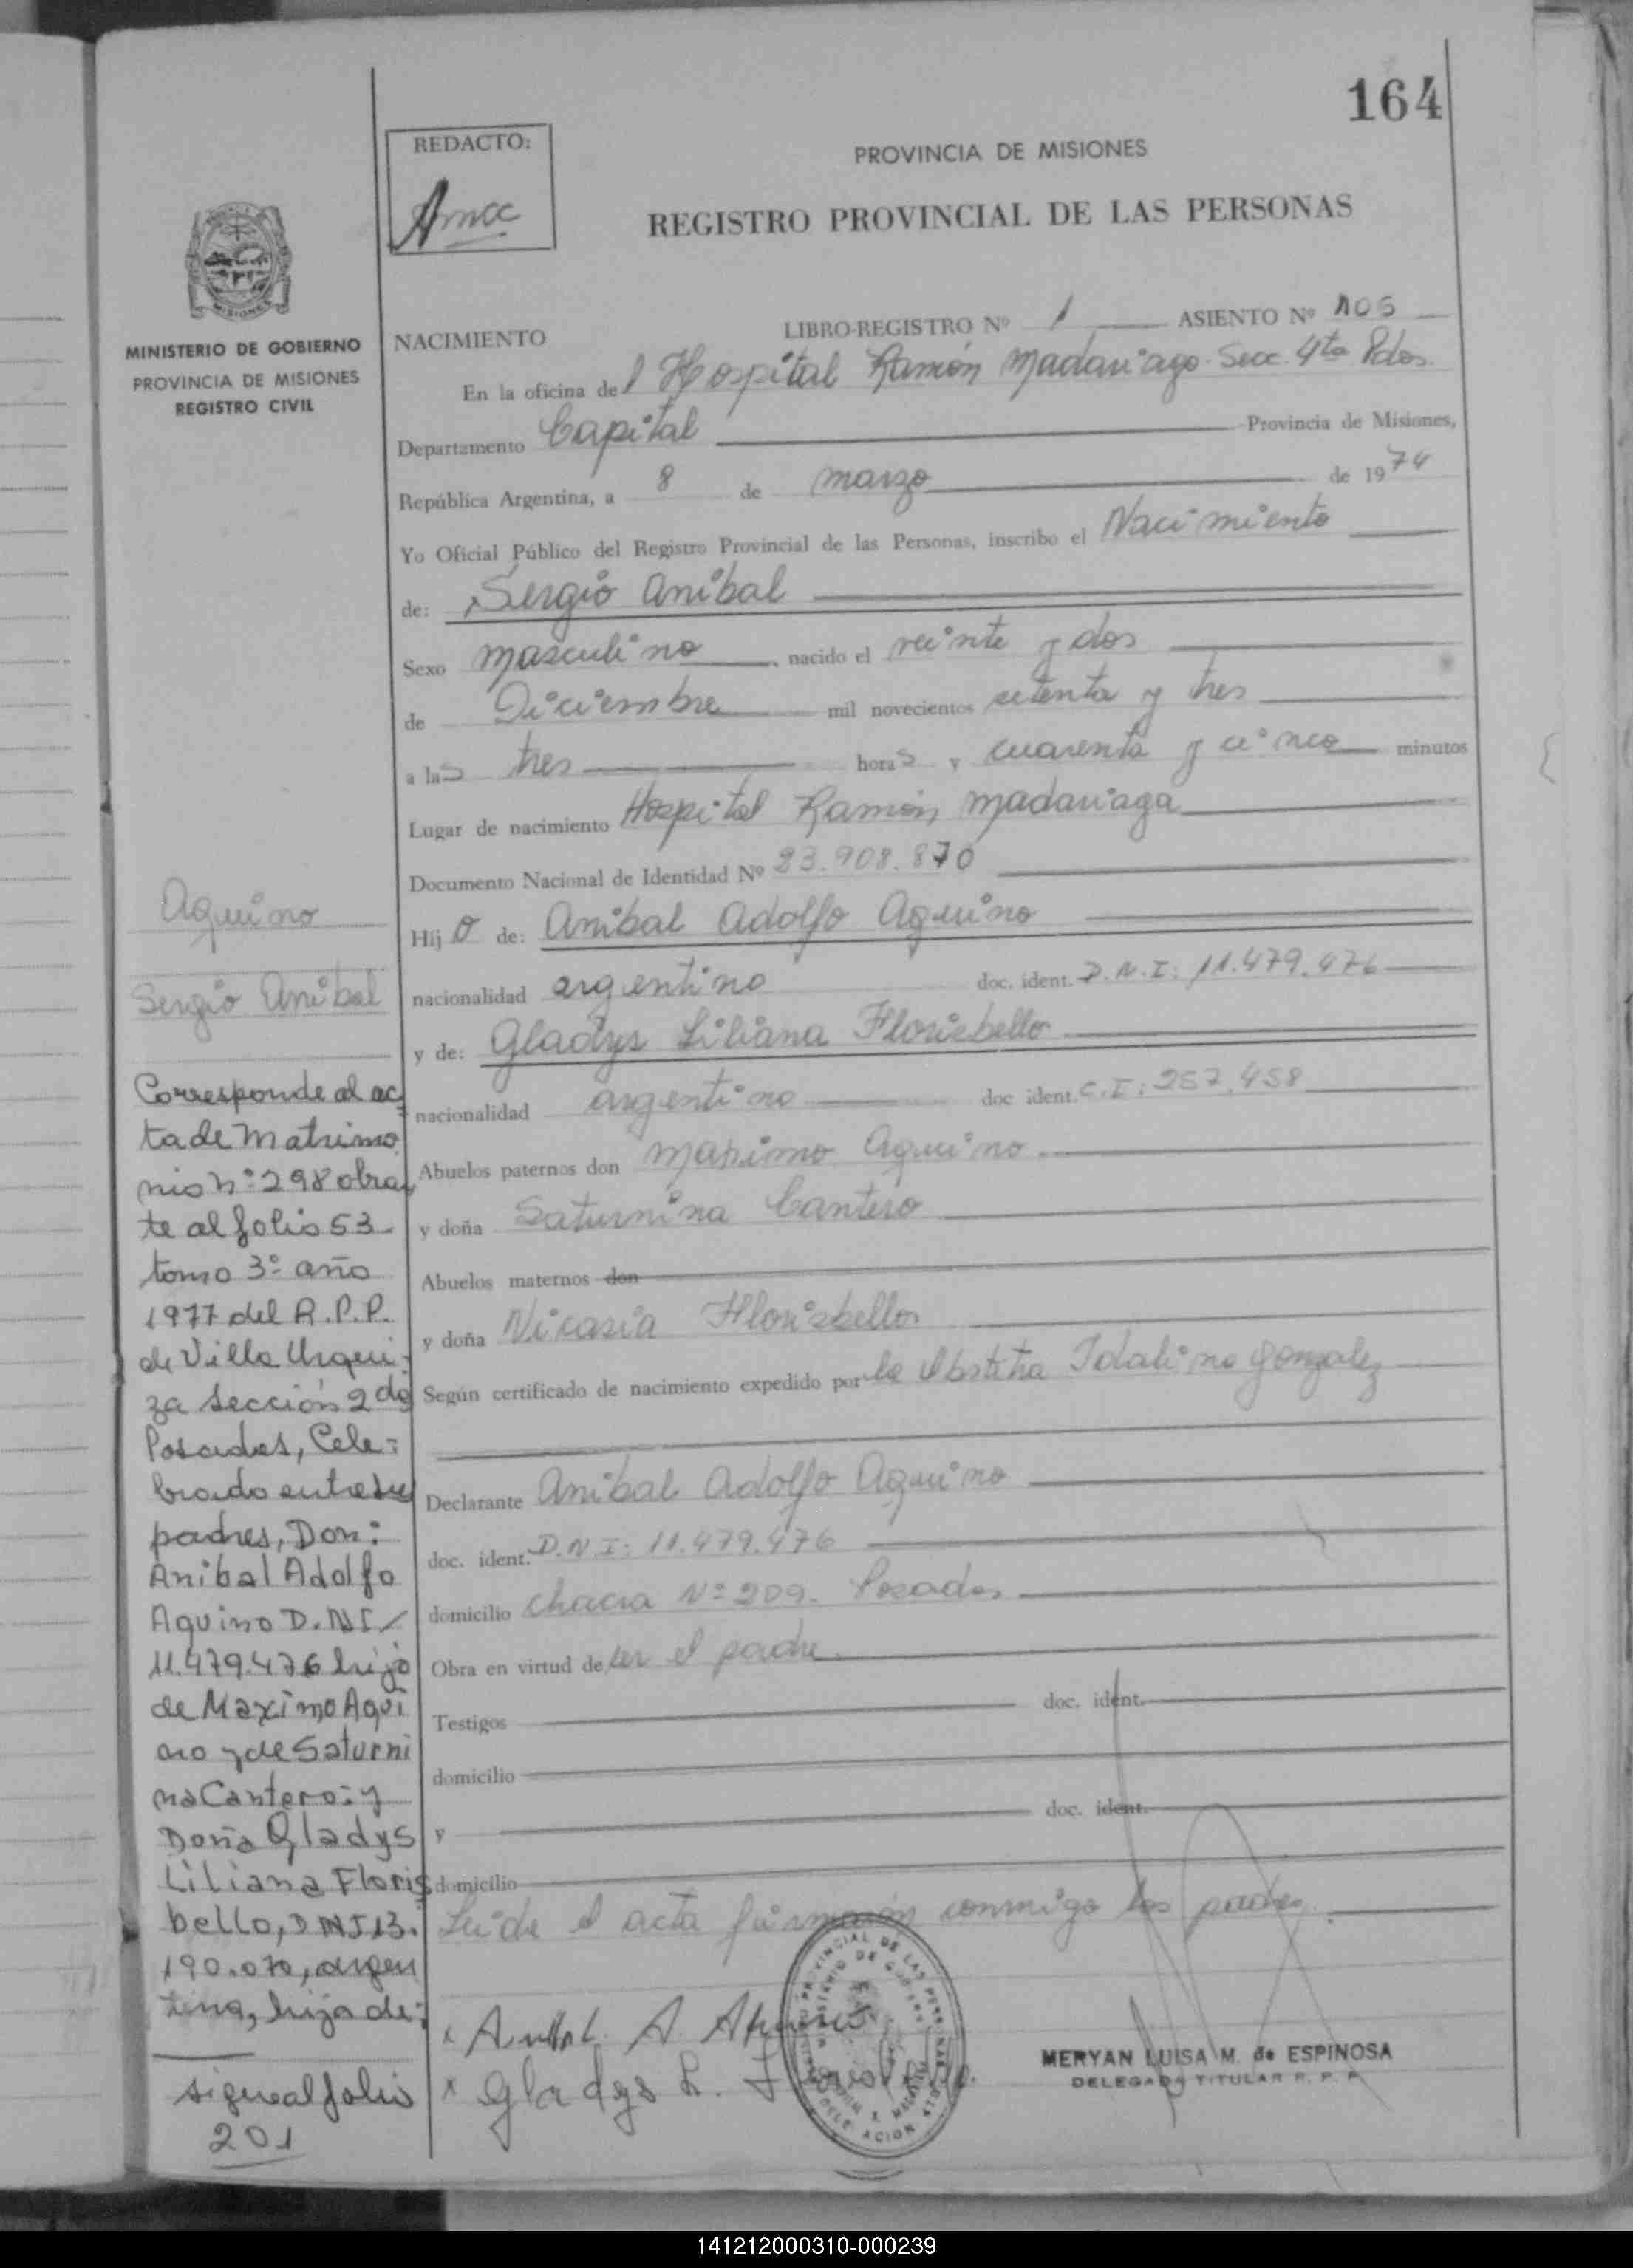 164
REDACTO:
Amcc
PROVINCIA DE MISIONES
REGISTRO PROVINCIAL DE LAS PERSONAS
MISIONES
MINISTERIO DE GOBIERNO
PROVINCIA DE MISIONES
REGISTRO CIVIL
NACIMIENTO LIBRO-REGISTRO Nº 1 ASIENTO Nº 105
En la oficina del Hospital Ramón Madariaga Secc. 4ta Pdas.
Departamento Capital Provincia de Misiones,
República Argentina, a 8 de marzo de 1974
Yo Oficial Público del Registro Provincial de las Personas, inscribo el Nacimiento
de: Sergio Anibal
Sexo masculino nacido el veinte y dos
de Diciembre mil novecientos setenta y tres
a las tres horas y cuarenta y cinco minutos
Lugar de nacimiento Hospital Ramón Madariaga
Documento Nacional de Identidad Nº 23.908.870
Hijo de: Anibal Adolfo Aquino
nacionalidad argentino doc. ident. D.N.I: 11.479.476
y de: Gladys Liliana Florisbello
nacionalidad argentino doc ident. C.I: 257.458
Abuelos paternos don Maximo Aquino
y doña Saturnina Cantero
Abuelos maternos don
y doña Nicasia Florisbello
Según certificado de nacimiento expedido por la Obstetra Idalina Gonzalez
Declarante Anibal Adolfo Aquino
doc. ident. D.N.I: 11.479.476
domicilio chacra Nº 209. Posadas
Obra en virtud de ser el padre
Testigos doc. ident.
domicilio
y doc. ident.
domicilio
Leida el acta firmaron conmigo los padres
x Anibal A. Aquino
x Gladys L.
MERYAN LUISA M. de ESPINOSA
DELEGADA TITULAR R. P. P.
Aquino
Sergio Anibal
Corresponde al ac
ta de Matrimo
nio nº 298 obran
te al folio 53
tomo 3º año
1977 del R.P.P.
de Villa Urqui
za sección 2da
Posadas, Cele=
brado entre sus
padres, Don:
Anibal Adolfo
Aquino D.N.I.
11.479.476 hijo
de Maximo Aqui
no y de Saturni
na Cantero: y
Doña Gladys
Liliana Floris
bello, DNI 13.
190.070, argen
tina, hija de:
sigue al folio
201
141212000310-000239